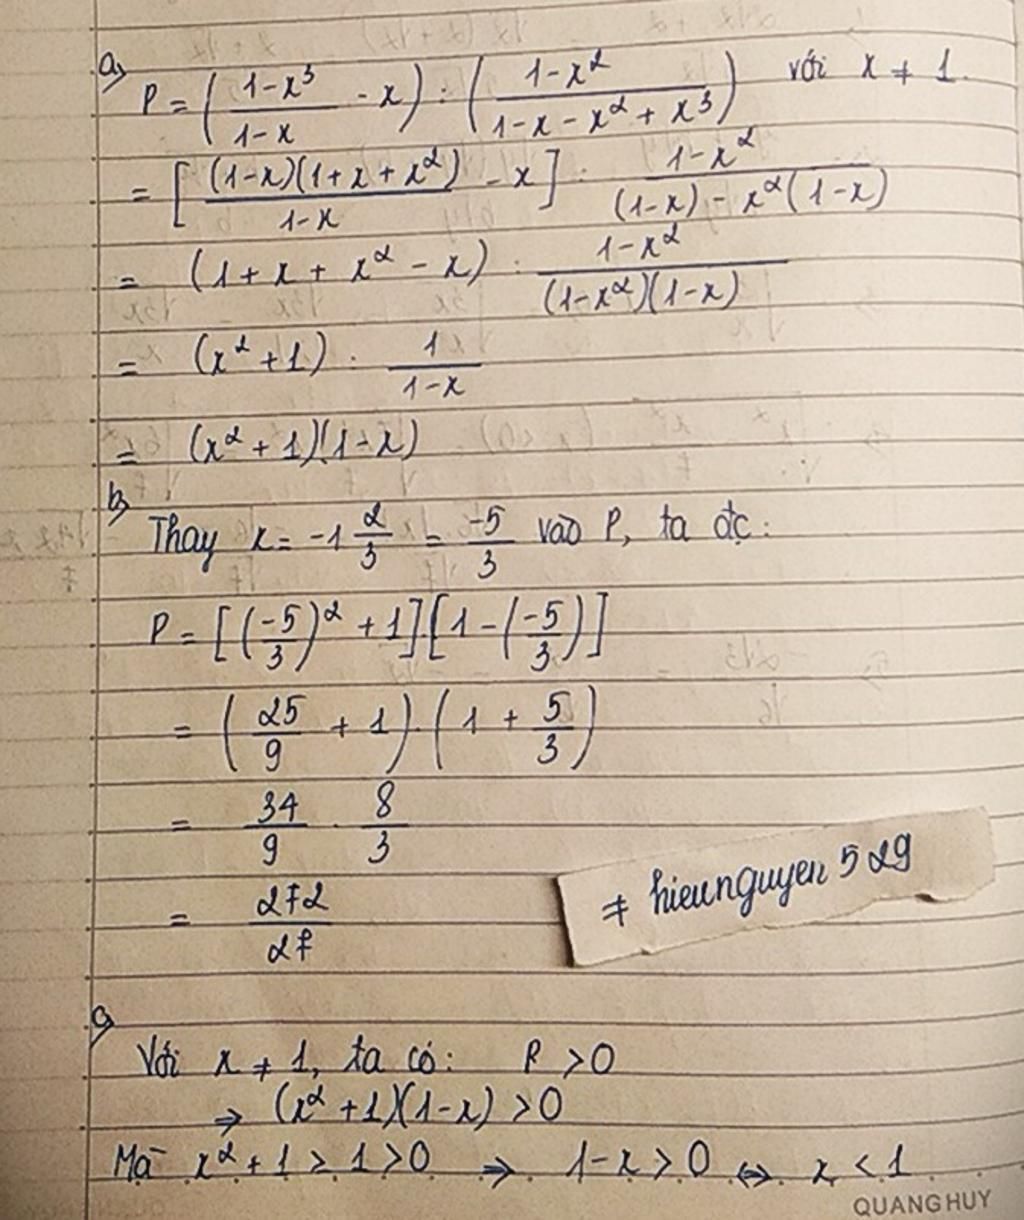 a) P = ( (1-x³)/(1-x) - x ) : ( (1-x²)/(1-x-x²+x³) ) với x ≠ 1.
= [ (1-x)(1+x+x²)/(1-x) - x ] : (1-x²)/((1-x)-x²(1-x))
= (1+x+x²-x) : (1-x²)/((1-x²)(1-x))
= (x²+1) : 1/(1-x)
= (x²+1)(1-x)
b) Thay x = -1 2/3 = -5/3 vào P, ta đc:
P = [(-5/3)²+1][1-(-5/3)]
= (25/9 + 1).(1 + 5/3)
= 34/9 . 8/3
= 272/27
# hieunguyen 529
c) Với x ≠ 1, ta có: P > 0
⇒ (x²+1)(1-x) > 0
Mà x²+1 ≥ 1 > 0 ⇒ 1-x > 0 ⇔ x < 1
QUANG HUY